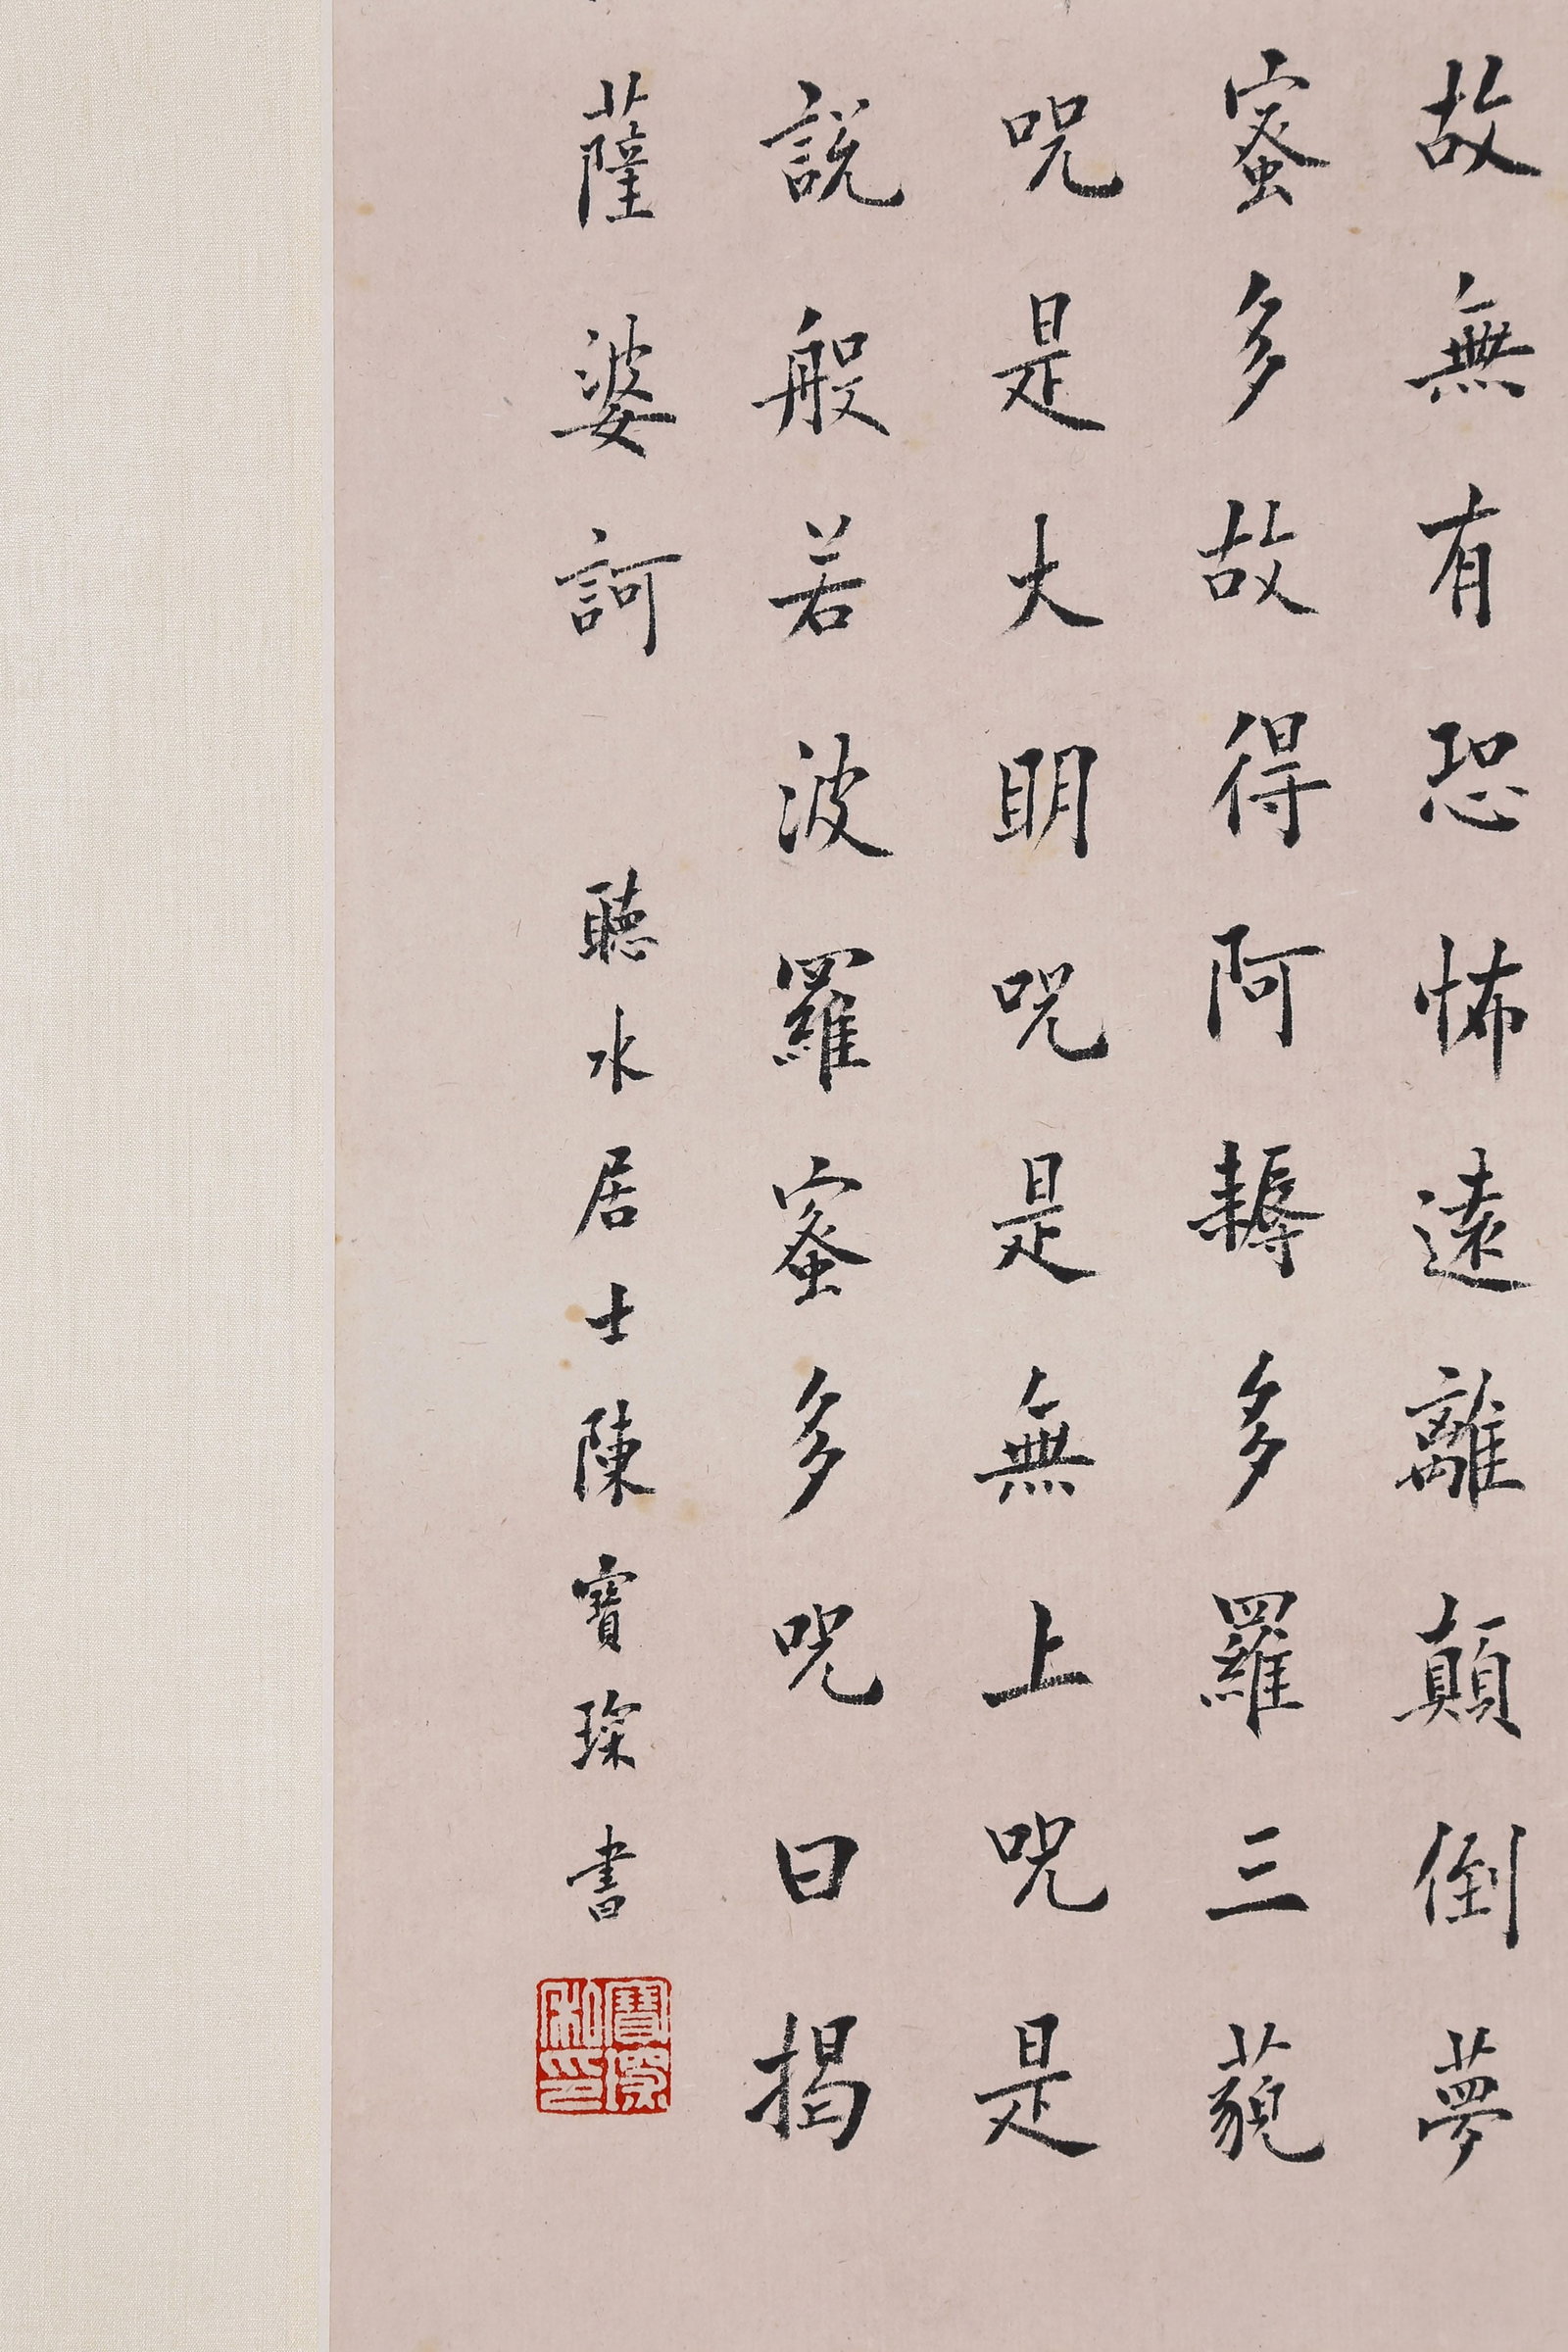 故無有恐怖遠離顛倒夢
蜜多故得阿耨多羅三藐
咒是大明咒是無上咒是
說般若波羅蜜多咒曰揭
薩婆訶
聽水居士陳寶琛書
寶琛私印